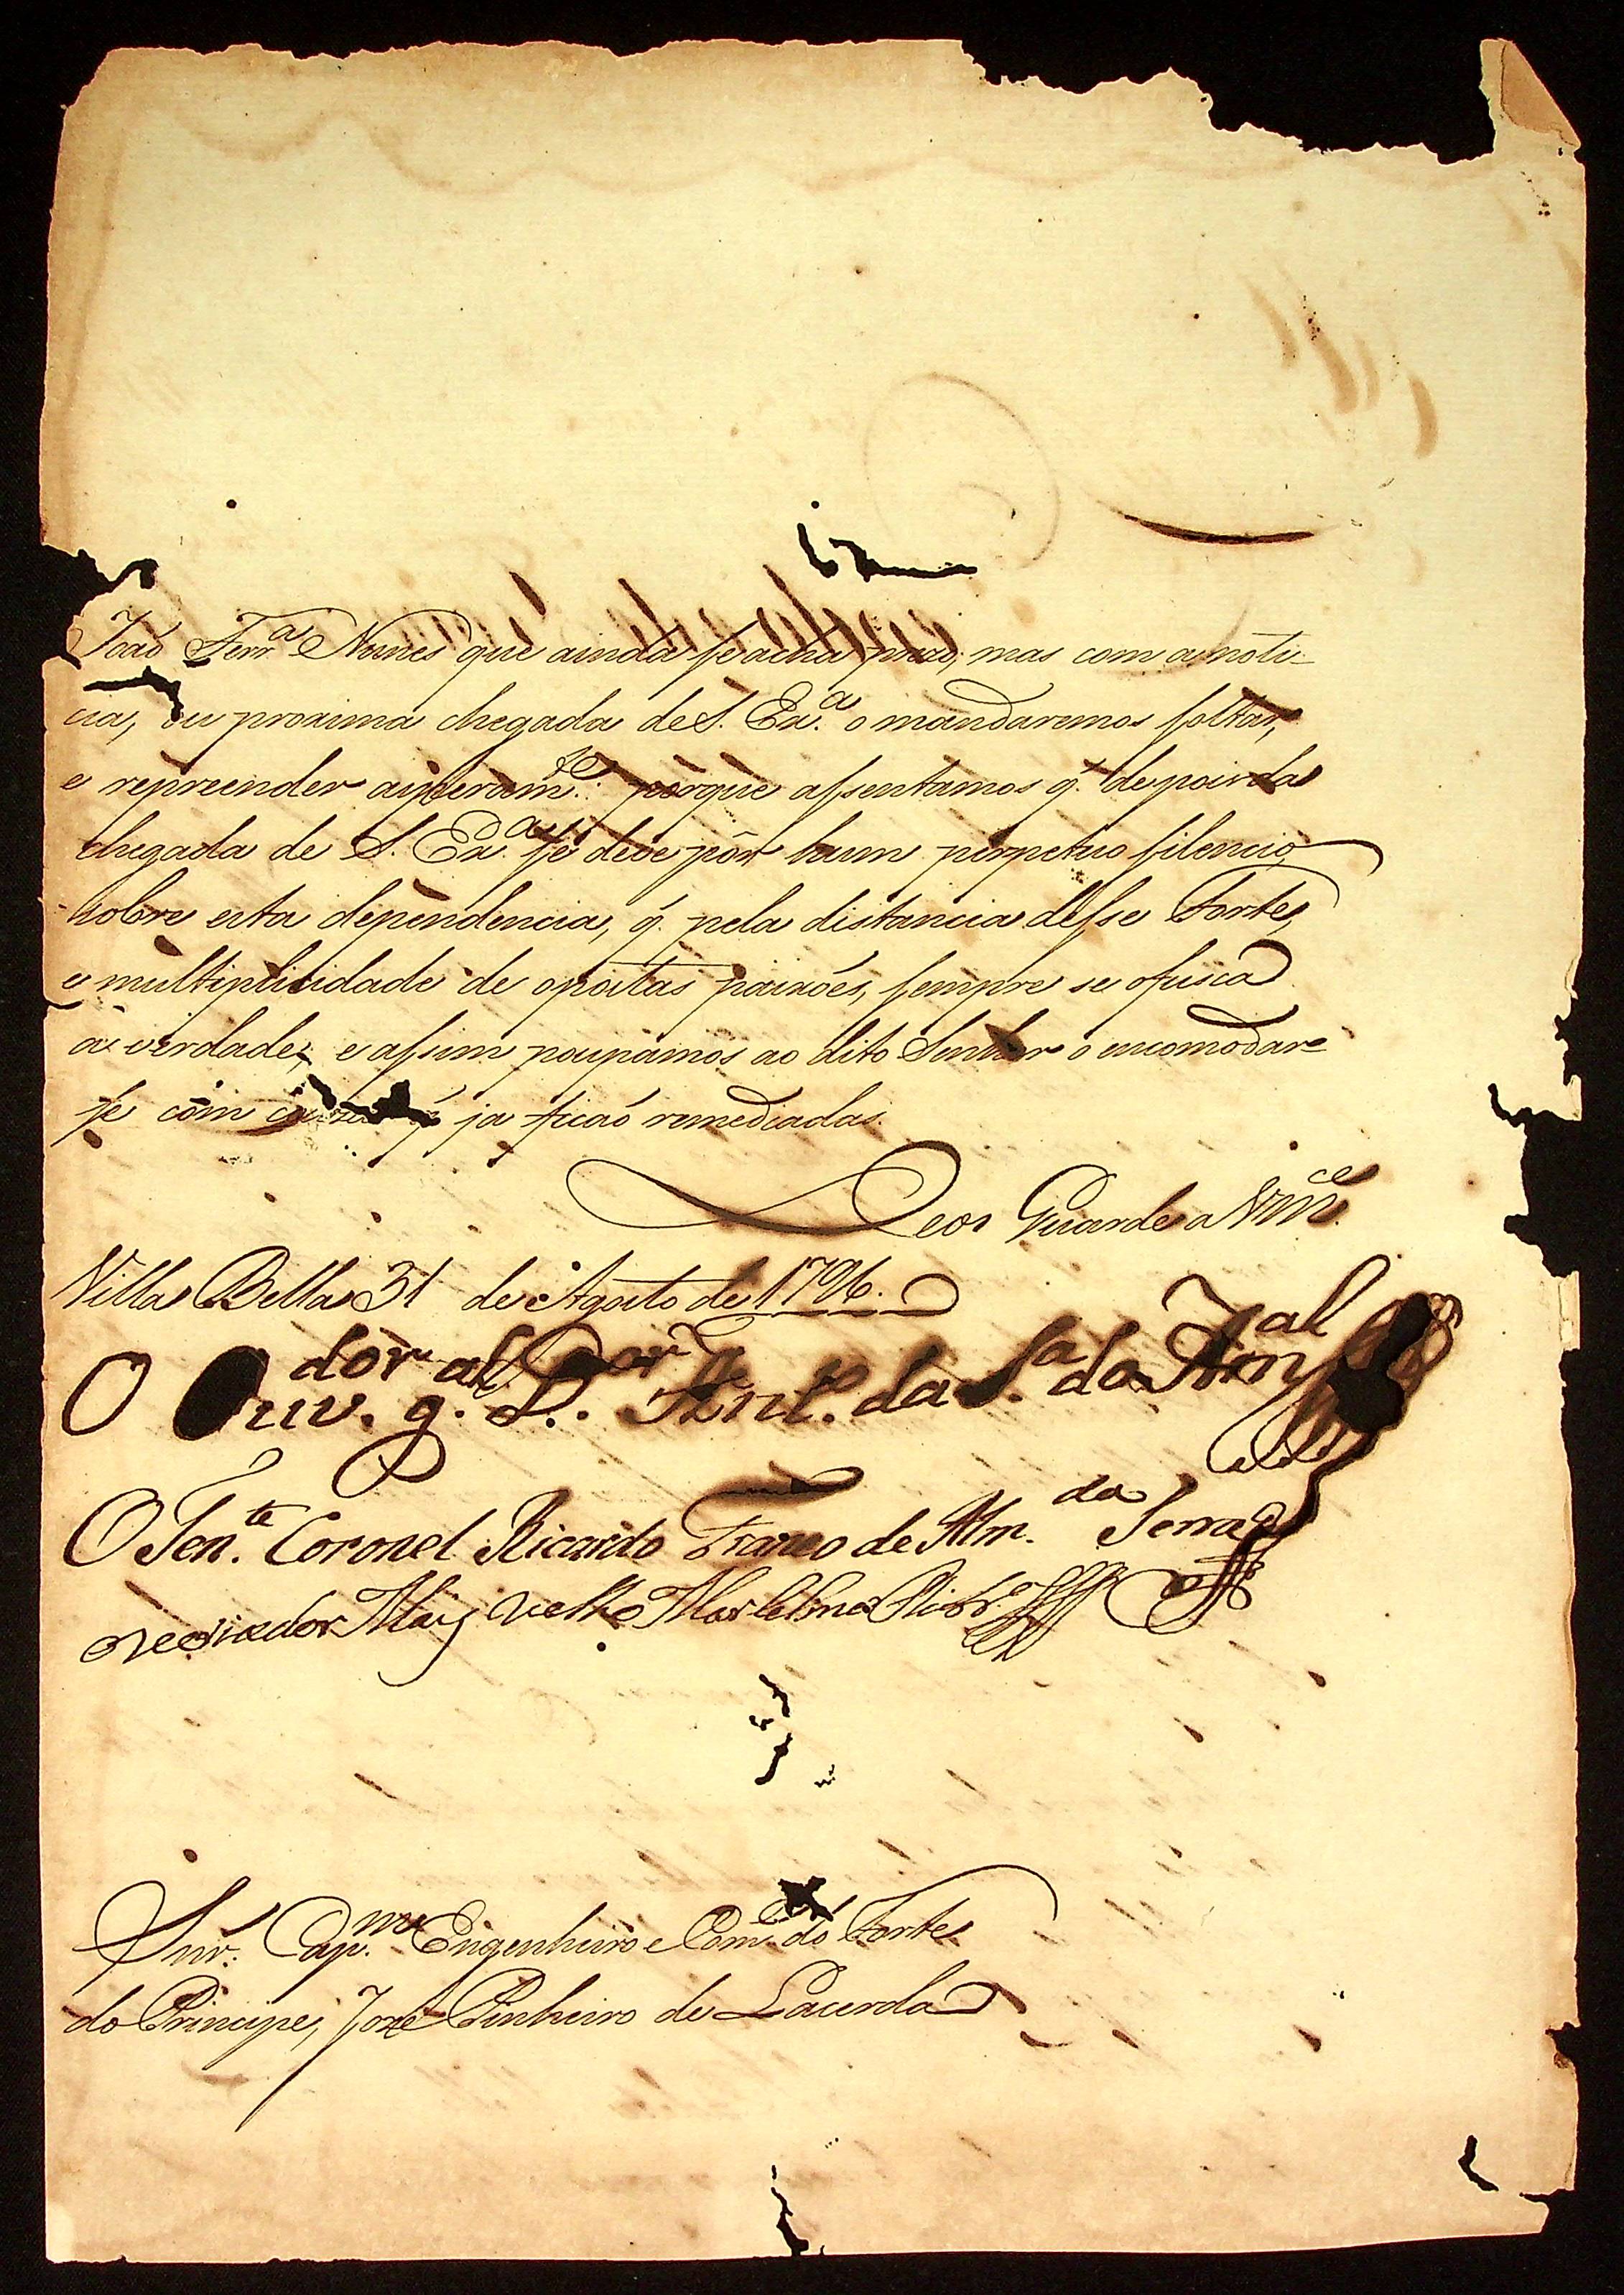 João Ferr.ª Nunes que ainda se acha prezo, mas com a noti-
cia, ou proxima chegada de S. Ex.ª o mandaremos soltar,
e repreender asperam.te porque assentamos q. depois da
chegada de S. Ex.ª se deve pôr hum perpetuo silencio
sobre esta dependencia, q. pela distancia desse Forte,
e multiplicidade de opostas paixoẽs, sempre se ofusca
a verdade, e assim poupamos ao dito Senhor o encomodar-
se com q ja ficaõ remediadas.
Deos Guarde a Vm.ce
Villa Bella 31 de Agosto de 1796.
O Ouv.dor g.al D.or Ant.o da S.a do Am.al
O Ten.te Coronel Ricardo Franco de Alm.da Serra
Vereador Mais Velho Marcelino Ribr.o
Snr. Cap.m Engenheiro e Com.e do Forte
do Principe, Jozé Pinheiro de Lacerda